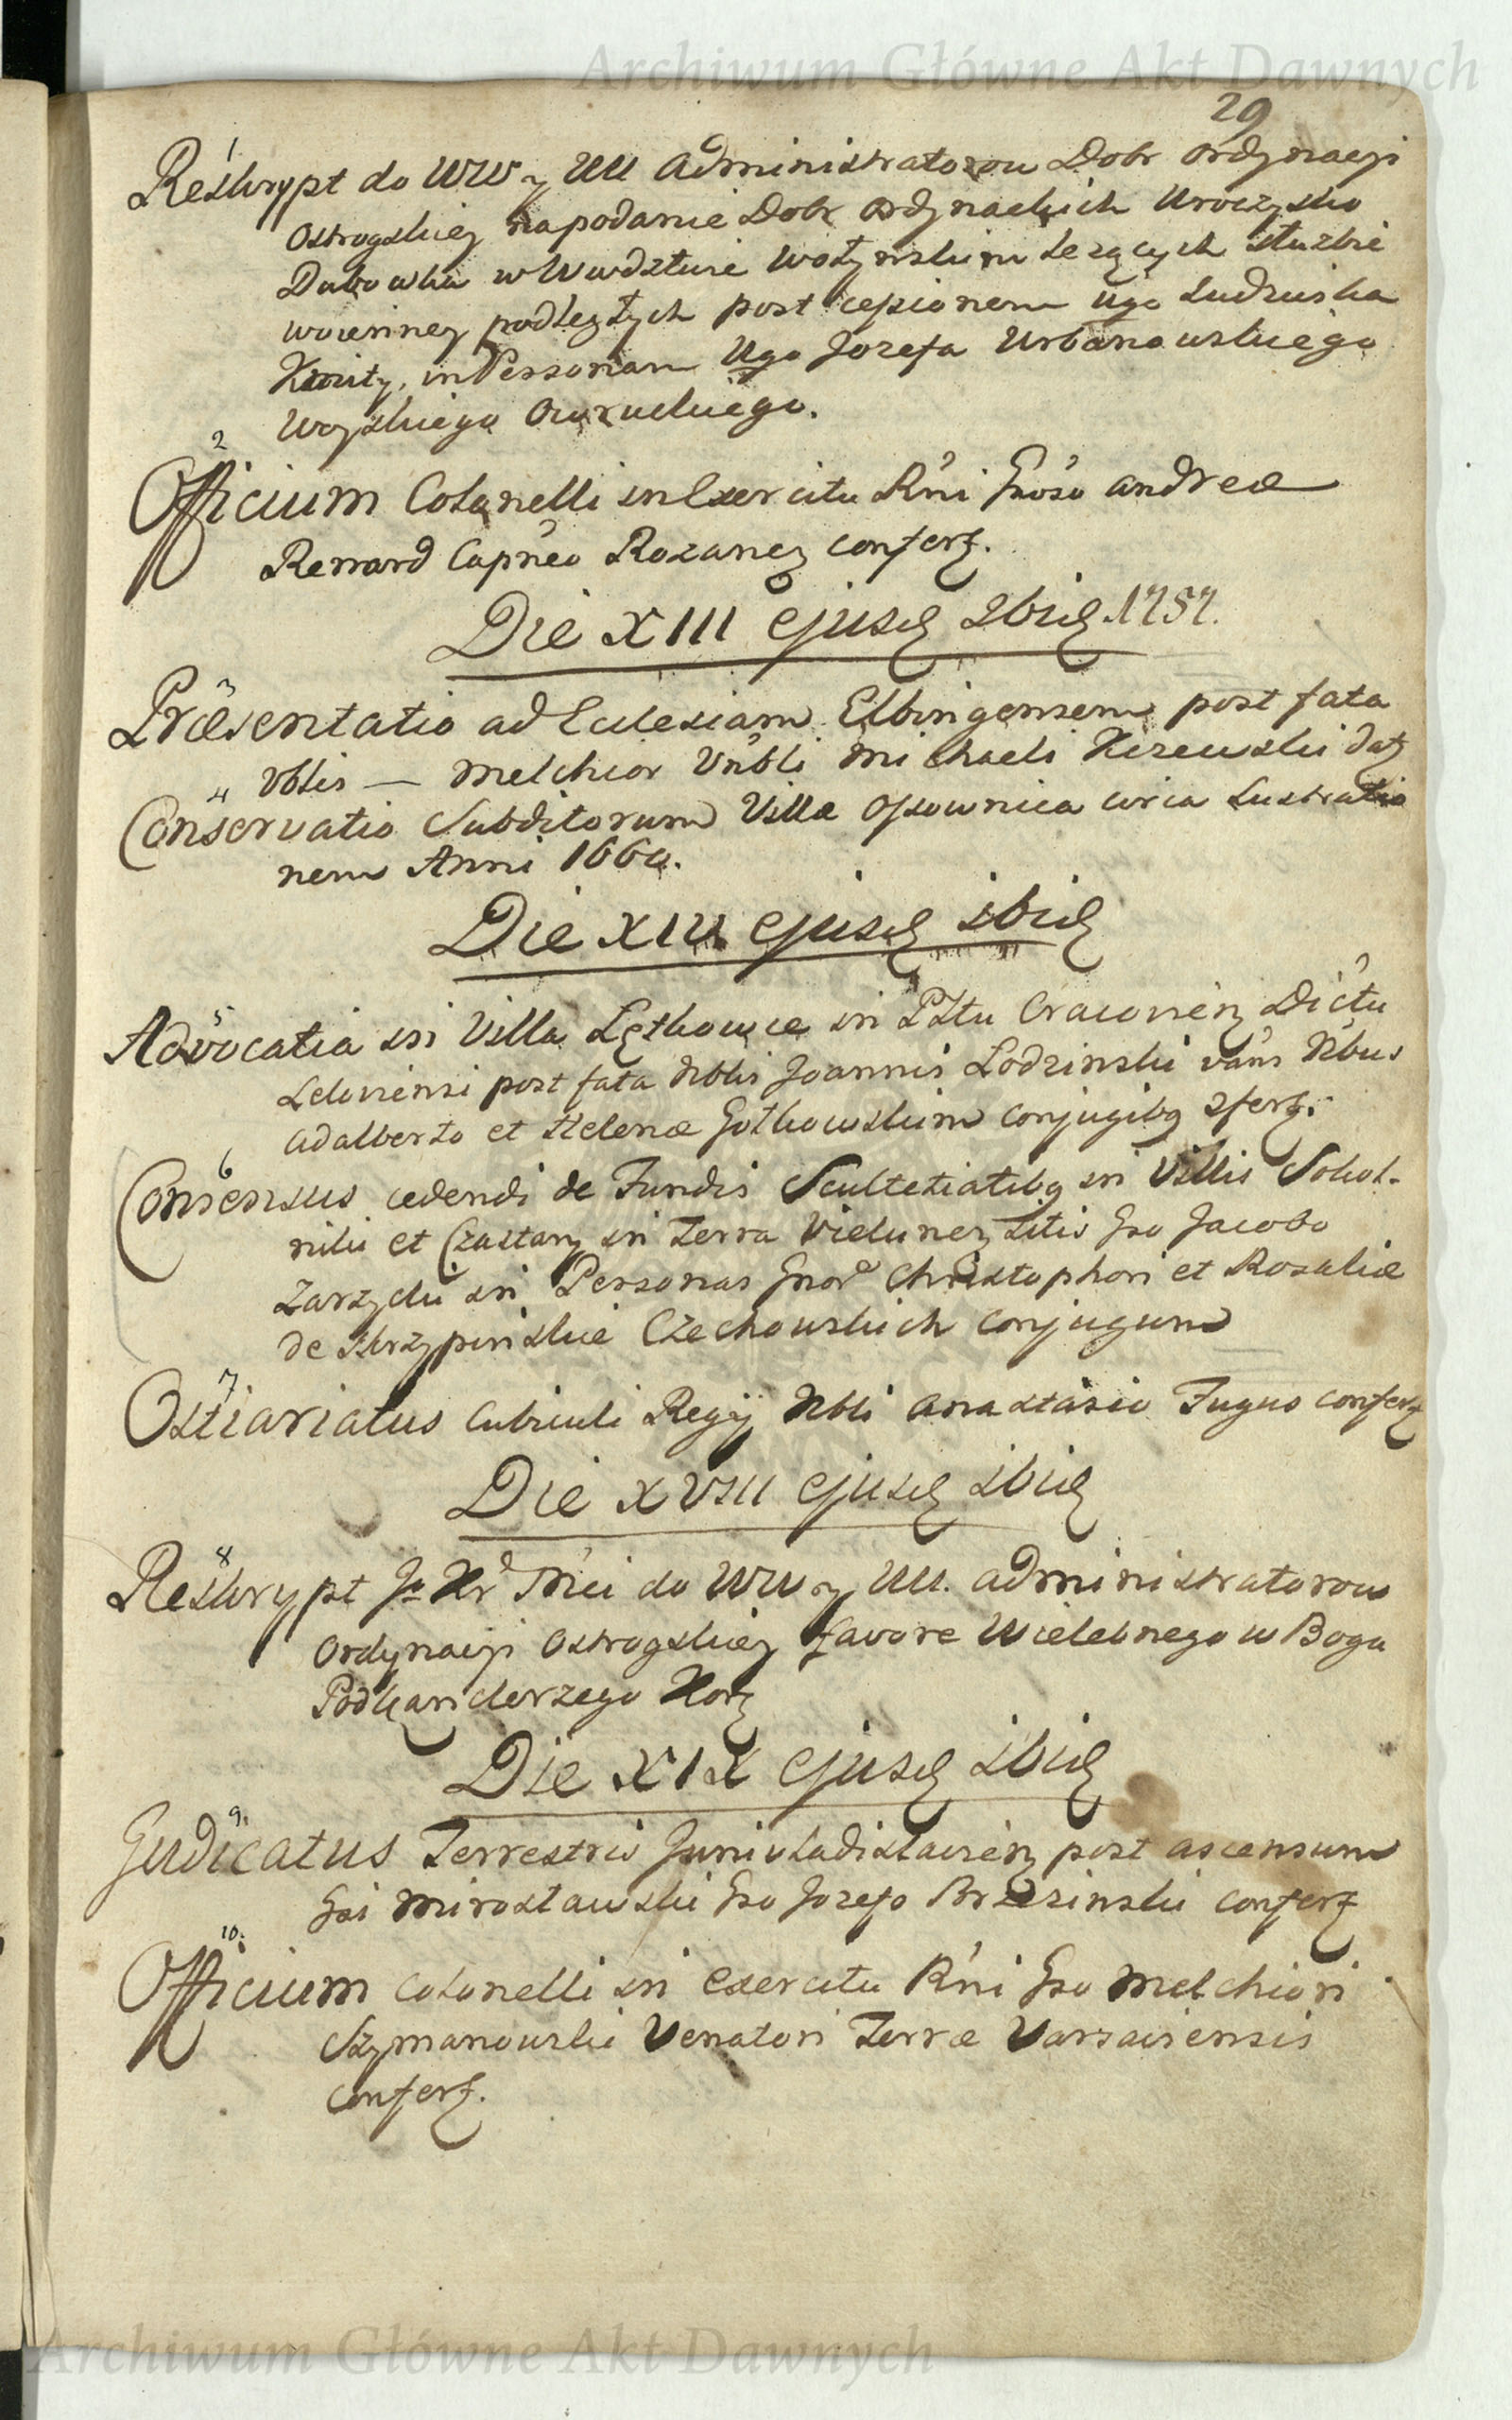 Archiwum Główne Akt Dawnych
29
1
Reskrypt do WW y UU Administratorow Dobr Ordynacyi
Ostrogskiey na podanie Dobr Ordynackich Uroczysko
Dubowka w Wwdztwie Wołynskim Lezących Służbie
woienney podległych post cessionem Ugo Ludwika
in Personam Ugo Jozefa Urbanowskiego
Woyskiego Owruckiego.
2
Officium Colonelli in Exercitu R'ni Gnoso Andreæ
Renard Capneo Rozaney conferz.
Die XIII ejusd Xbris 1757.
3
Præsentatio ad Ecclesiam Elbingensem post fata
Vblis — Melchior Vnbli Michaeli Kizewski datz
4
Conservatio Subditorum Villæ Ossownica circa Lustratio
nem Anni 1660.
Die XIV ejusd Xbris
5
Advocatia in Villa Lgthowice in PXtu Cracovien Dictu
Leloviensi post fata Nblis Joannis Lodzinski vans Nbus
Adalberto et Helenæ Gotkowskim conjugibq sferz.
6
Consensus cedendi de Fundis Scultetiatibq in Villis Sokol-
niki et Czastary in Terra Vielunez sitis Gso Jacobo
Zarzycki in Personas Gnor Christophori et Rosaliæ
de Skrzypinskie Czechowskich Conjugum
7
Ostiariatus Cubiculi Regij Nbli Anastasio Fugus conferz
Die XVIII ejusd Xbris
8
Reskrypt J: Kr Mci do WW y UU. Administratorow
Ordynacyi Ostrogskiey favore Wielebnego w Bogu
Podkanclerzego Korz
Die XIX ejusd Xbris
9.
Judicatus Terrestris Junivladislavienz post ascensum
Gsi Mirosławski Gso Jozefo Brzezinski conferz
10.
Officium Colonelli in Exercitu R'ni Gso Melchiori
Szymanowski Venatori Terræ Varsaviensis
conferz.
Archiwum Główne Akt Dawnych